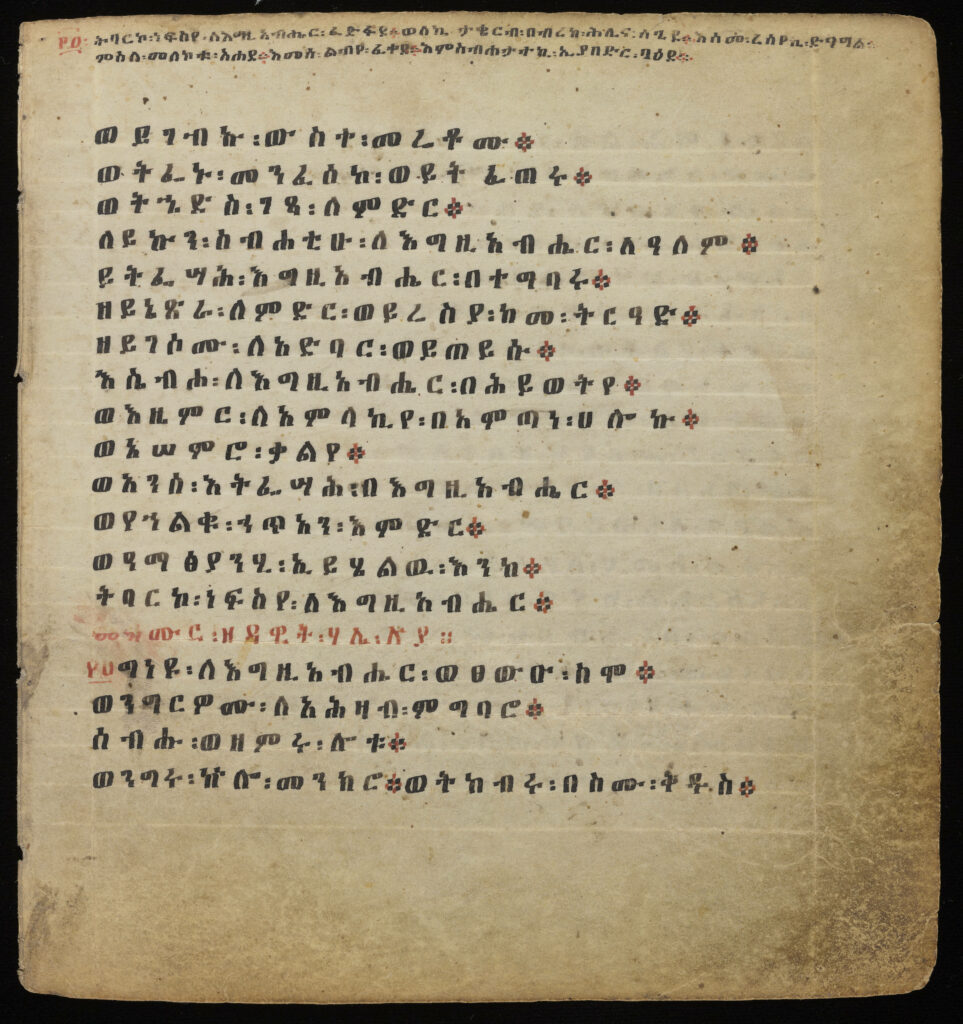 ፻፬ ትባርኮ፡ነፍስየ፡ለእግዚአብሔር፡ፈድፋደ፨ወለኪ፡ታቄርብ፡በብሩክ፡ሕሊና፡
ምስለ፡መለኮቱ፡አሐደ፨እመሰ፡ልብየ፡ፈቀደ፨እምስብሐታተኪ፡ኢያበድር፡ባዕደ፨
ወይገብኡ፡ውስተ፡መሬቶሙ፨
ወትፌኑ፡መንፈሰከ፡ወይትፈጠሩ፨
ወትኄድስ፡ገጻ፡ለምድር፨
ለይኩን፡ስብሐቲሁ፡ለእግዚአብሔር፡ለዓለም፨
ይትፌሣሕ፡እግዚአብሔር፡በተግባሩ፨
ዘይኔጽራ፡ለምድር፡ወይሬስያ፡ከመ፡ትርዓድ፨
ዘይገሶሙ፡ለአድባር፡ወይጠይሱ፨
እሴብሖ፡ለእግዚአብሔር፡በሕይወትየ፨
ወእዜምር፡ለአምላኪየ፡በአምጣነ፡ሀሎኩ፨
ወኣሠምሮ፡ቃልየ፨
ወአንሰ፡እትፌሣሕ፡በእግዚአብሔር፨
ወየኀልቁ፡ኃጥአን፡እምድር፨
ወዓማፅያንሂ፡ኢይሄልዉ፡እንከ፨
ትባርኮ፡ነፍስየ፡ለእግዚአብሔር፨
መዝሙር፡ዘዳዊት፡ሃሌ፡ሉያ።
፻፬ ግነዩ፡ለእግዚአብሔር፡ወፀውዑ፡ስሞ፨
ወንግርዎሙ፡ለአሕዛብ፡ምግባሮ፨
ሰብሑ፡ወዘምሩ፡ሎቱ፨
ወንግሩ፡ኵሎ፡መንክሮ፨ወትከብሩ፡በስሙ፡ቅዱስ፨